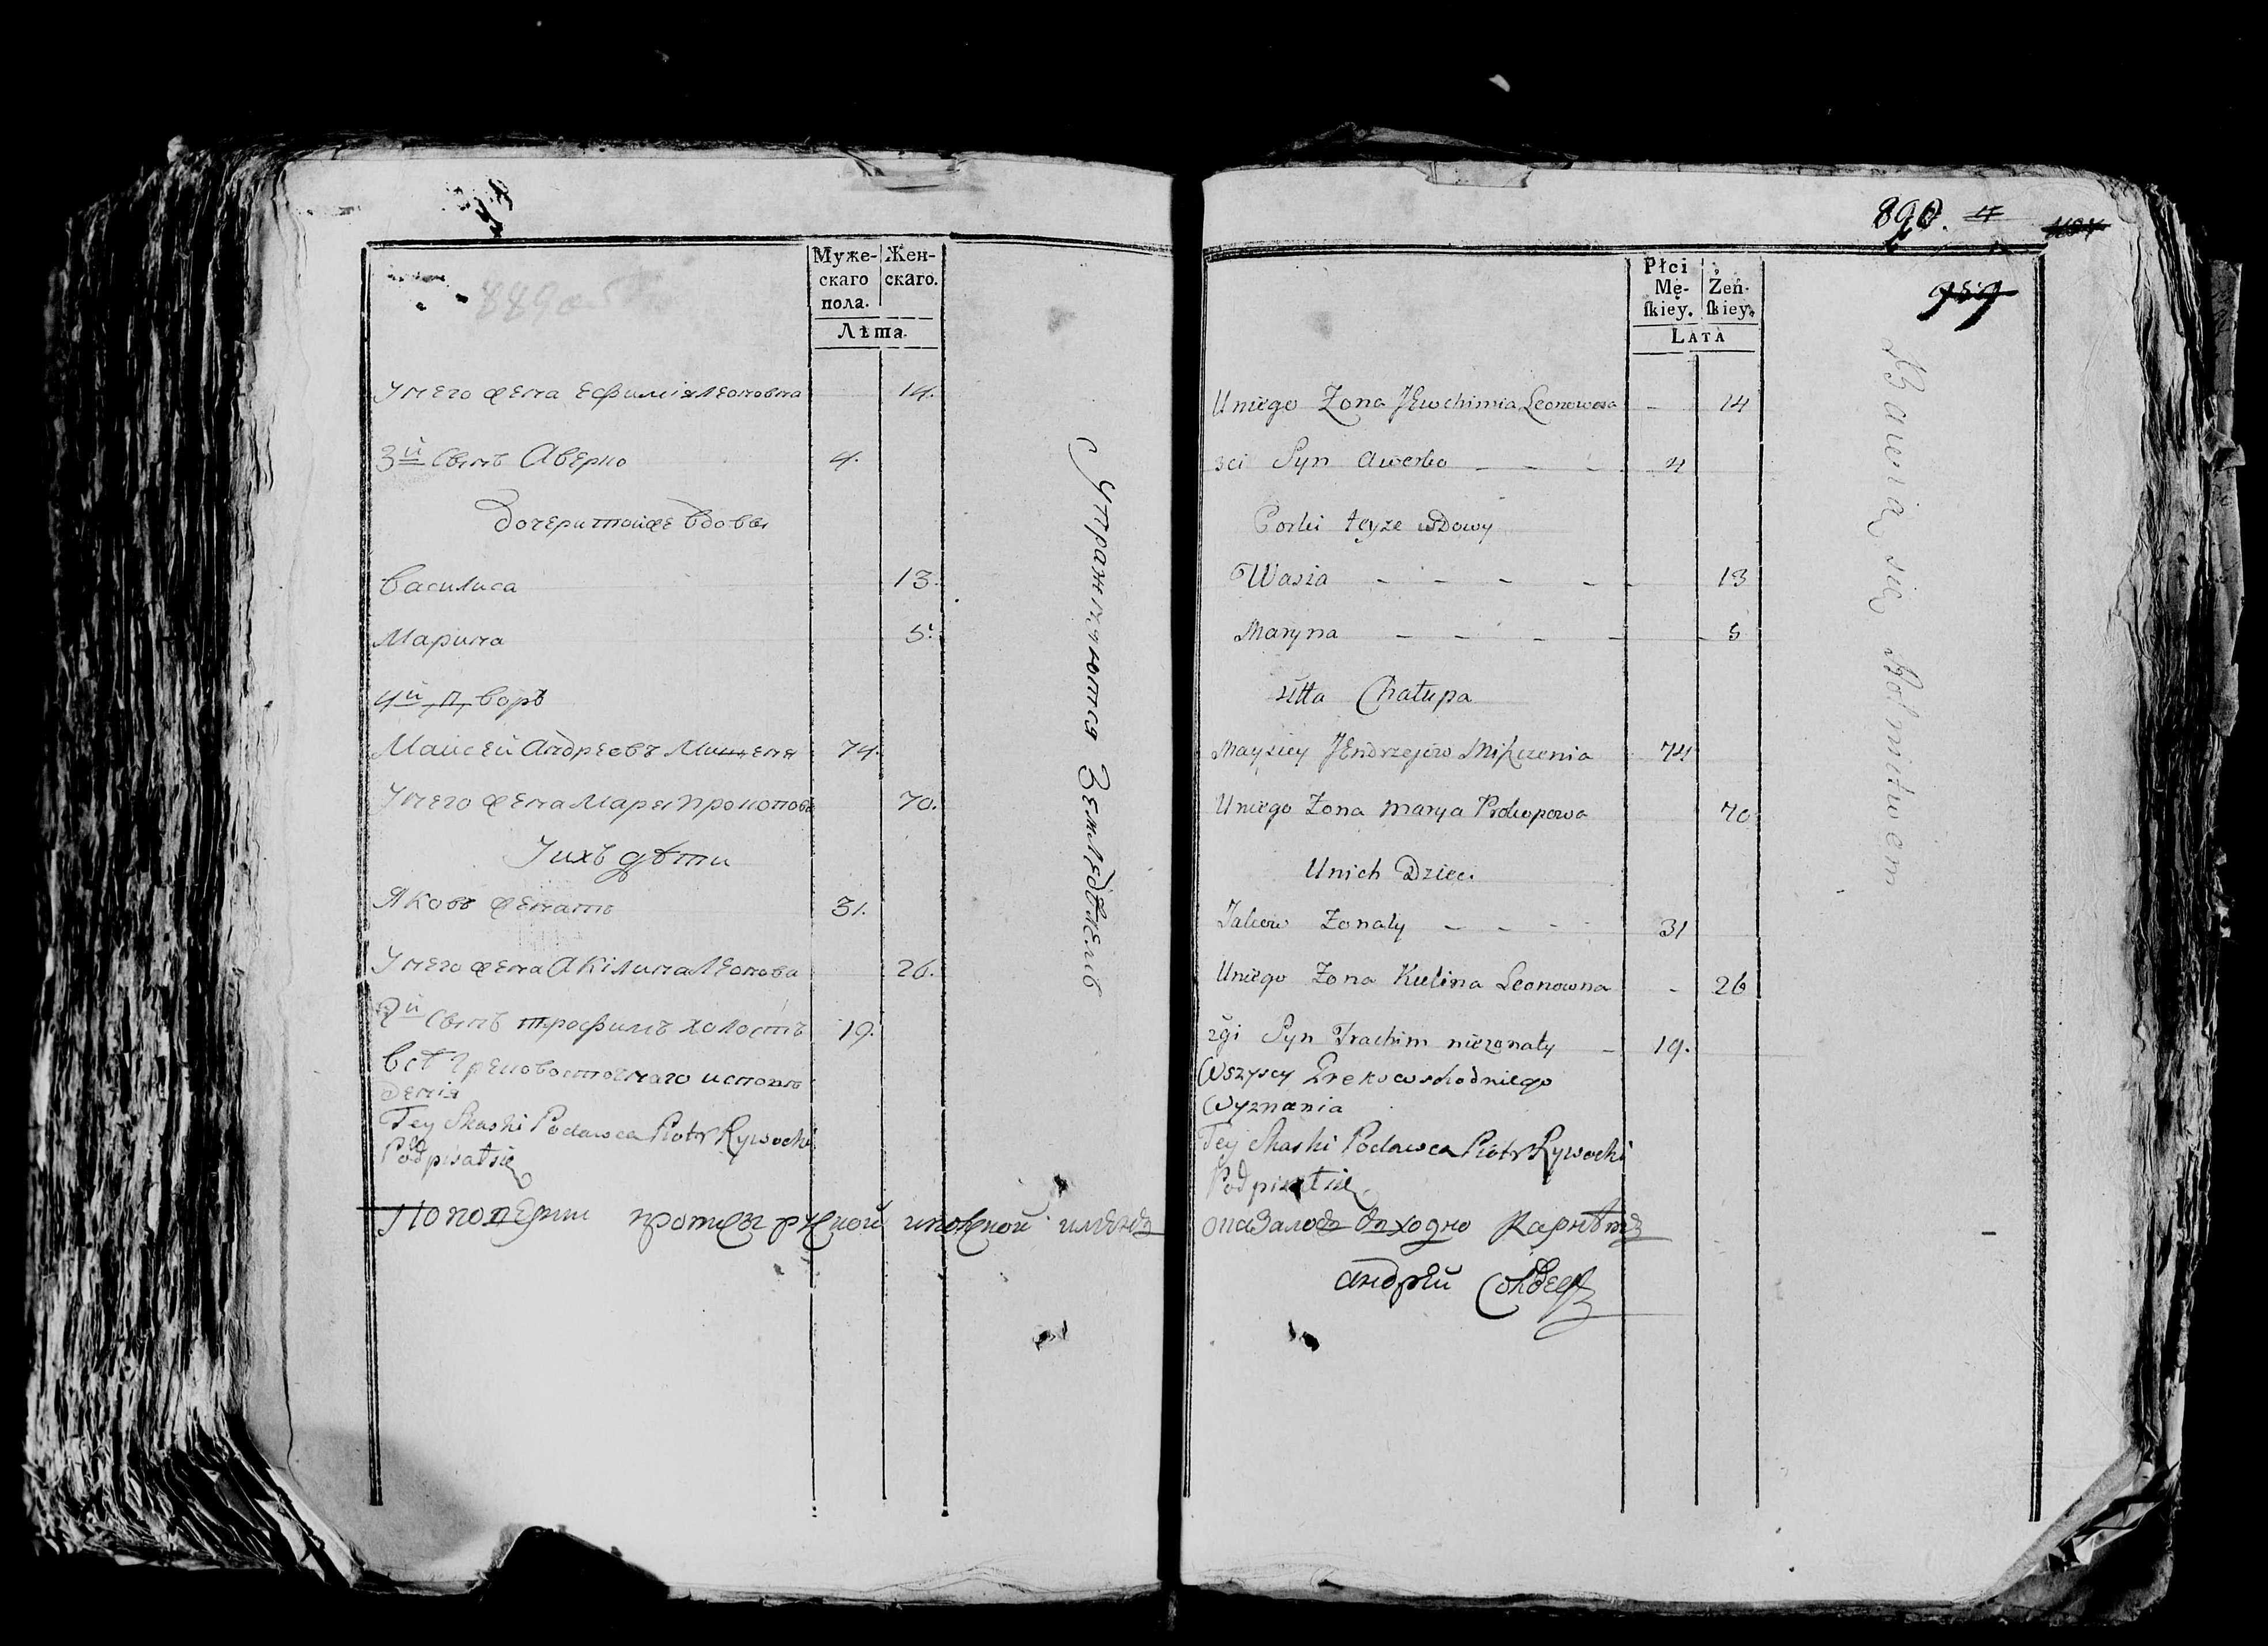 Муже-
скаго
пола.
Жен-
скаго.
Лѣта.
У него жена Ефимія Леоновна 14.
3й сынъ Аверко 4.
дочери тойже вдовы
Василиса 13.
Марина 5.
4й дворъ
Майсей Андреевъ Мищеня 74.
У него жена Марья Прокопова 70.
У ихъ дѣти
Яковъ женатъ 31.
У него жена Акілина Леонова 26.
2й сынъ трофимъ холостъ 19.
Всѣ Грековосточнаго исповѣ
денія
Tey Skaski Podawca Piotr Rywocki
Podpisał się
Упражняются Земледѣлемъ
890.
959
Płci
Mę-
ſkiey.
Żeń-
ſkiey.
LATA
Uniego Zona JEwchimia Leonowna - 14
3ci Syn Awerko - - - 4
Corki teyze wdowy
Wasia - - - - 13
Maryna - - - - 5
4tta Chałupa
Mayziey JEndrzejów Miszczenia 74
Uniego Zona Marya Prokopowa 70
Unich Dzieci
Jakow Zonaty - - - 31
Uniego Zona Kulina Leonowna - 26
2gi Syn Trachim niezonaty - 19.
Wszyscy Grekowschodniego
Wyznania
Tey Skaski Podawca Piotr Rywocki
Podpisał się
Bawią się Rolnictwem
андрей